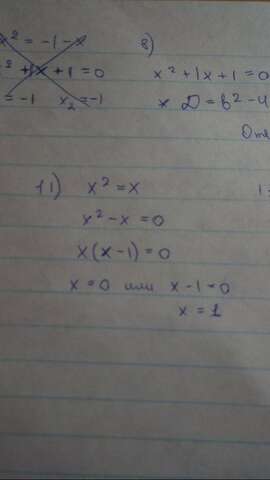 x² = -1 - x
² + 1x + 1 = 0
= -1 x₂ = -1
8)
x² + 1x + 1 = 0
D = b² - 4
Отве
11) x² = x
x² - x = 0
x(x - 1) = 0
x = 0 или x - 1 = 0
x = 1